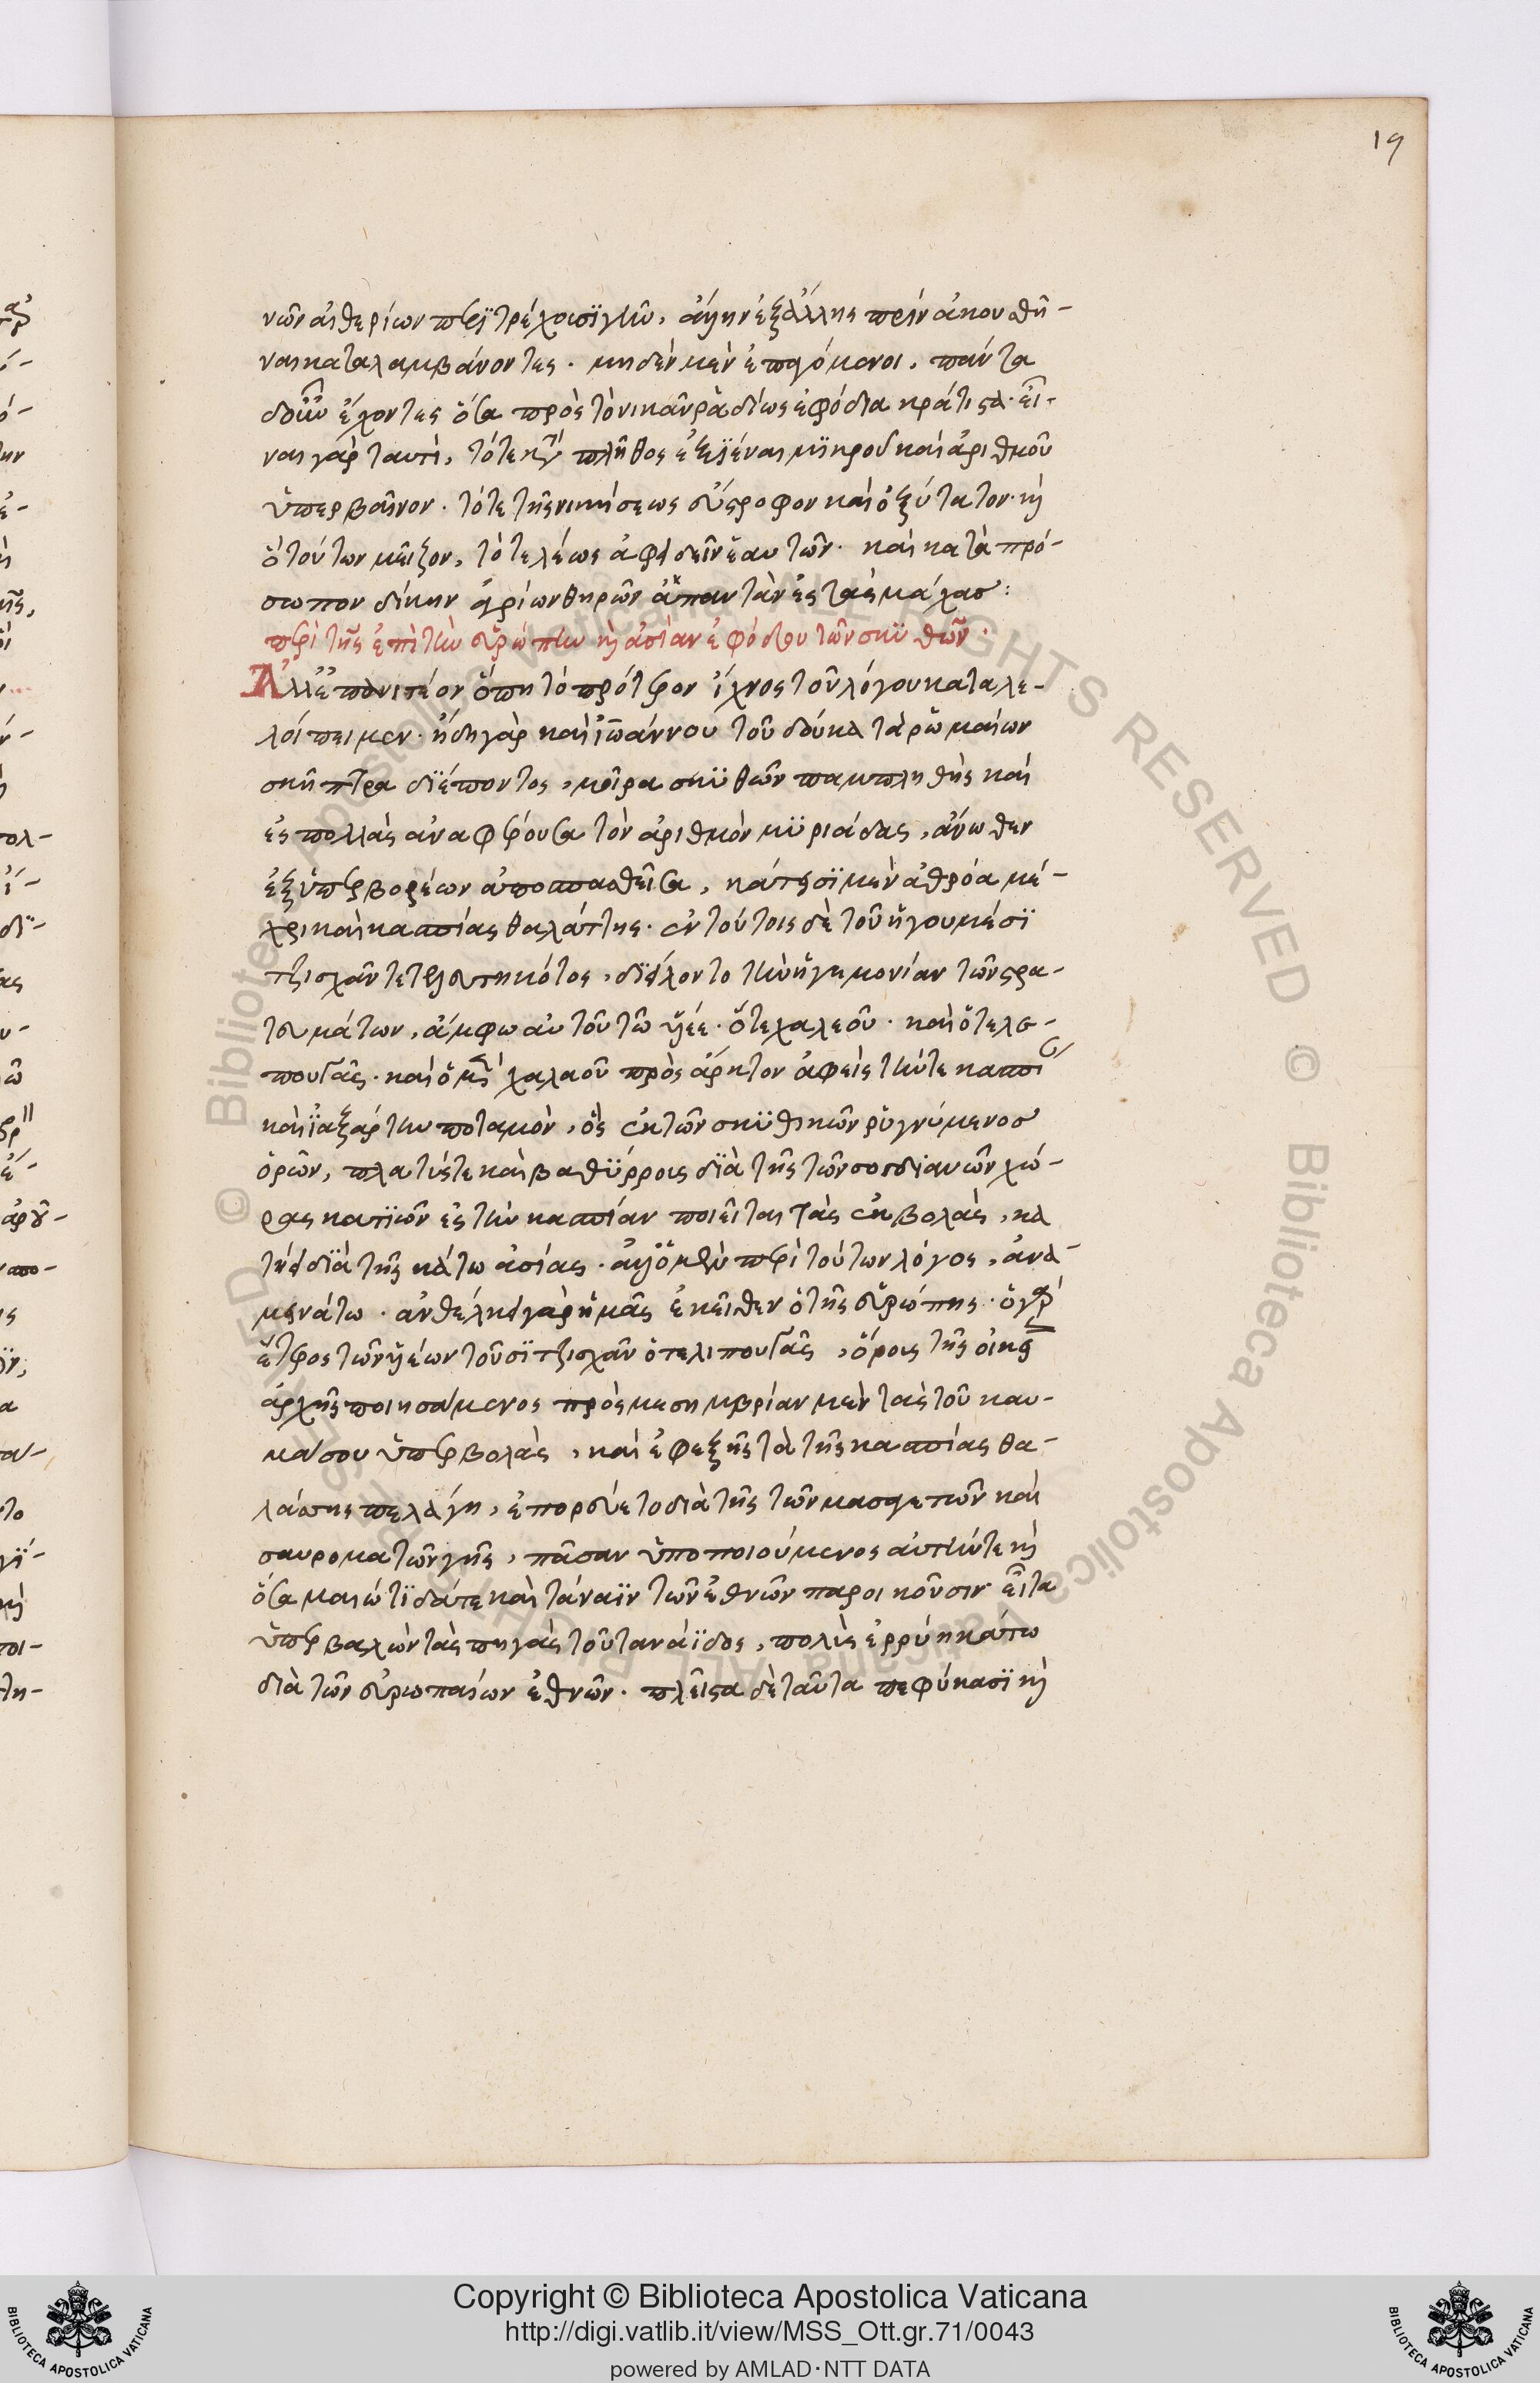 19
νῶν αἰθερίων περιτρέχουσι γῆν, ἄλλην ἐξ ἄλλης πρὶν ἀκουσθῆ-
ναι καταλαμβάνοντες. μηδὲν μὲν ἐπαγόμενοι, πάντα
δ' οὖν ἔχοντες ὅσα πρὸς τὸ νικᾶν ῥᾳδίως ἐφόδια κράτιστα. εἶ-
ναι γὰρ ταυτὶ, τό τε κατὰ πλῆθος ἐξιέναι μικροῦ καὶ ἀριθμοῦ
ὑπερβαῖνον. τό τε τῆς κινήσεως εὔστροφον καὶ ὀξύτατον. καὶ
ὃ τούτων μεῖζον, τὸ τελέως ἀφειδεῖν ἑαυτῶν. καὶ κατὰ πρό-
σωπον δίκην ἀγρίων θηρῶν ἀπαντᾶν ἐς τὰς μάχας:
περὶ τῆς ἐπὶ τὴν εὐρώπην καὶ ἀσίαν ἐφόδου τῶν σκυθῶν.
Ἀλλ' ἐπανιτέον ὅπη τὸ πρότερον ἴχνος τοῦ λόγου καταλε-
λοίπειμεν. ἤδη γὰρ καὶ ἰωάννου τοῦ δούκα τὰ ῥωμαίων
σκῆπτρα διέποντος, μοῖρα σκυθῶν παμπληθὴς καὶ
ἐς πολλὰς ἀναφέρουσα τὸν ἀριθμὸν μυριάδας, ἄνωθεν
ἐξ ὑπερβορέων ἀποσπασθεῖσα, κάτεισι μὲν ἀθρόα μέ-
χρι καὶ κασπίας θαλάττης. ἐν τούτοις δὲ τοῦ ἡγουμέσι
τζισχὰν τετελευτηκότος, διείλοντο τὴν ἡγεμονίαν τῶν στρα-
τευμάτων, ἄμφω αὐτοῦ τὼ υἱέε. ὅ τε χαλεοῦ. καὶ ὁ τελε-
πουγᾶς. καὶ ὁ μὲν χαλαοῦ πρὸς ἄρκτον ἀφεὶς τήν τε κασπί
καὶ ἰαξάρτην ποταμὸν, ὃς ἐκ τῶν σκυθικῶν ῥηγνύμενος
ὀρῶν, πλατύς τε καὶ βαθύρρους διὰ τῆς τῶν σογδιανῶν χώ-
ρας κατιὼν ἐς τὴν κασπίαν ποιεῖται τὰς ἐκβολὰς, κα
τῄει διὰ τῆς κάτω ἀσίας. ἀλλ' ὁ μὲν περὶ τούτων λόγος, ἀνα-
μενάτω. ἀνθέλκει γὰρ ἡμᾶς ἐκεῖθεν ὁ τῆς εὐρώπης. ὁ γὰρ
ἕτερος τῶν υἱέων τοῦ σιτζισχὰν ὁ τελιπουγᾶς, ὅρους τῆς οἰκείας
ἀρχῆς ποιησάμενος πρὸς μεσημβρίαν μὲν τὰς τοῦ καυ-
κάσου ὑπερβολὰς, καὶ ἐφεξῆς τὰ τῆς κασπίας θα-
λάσσης πελάγη, ἐπορεύετο διὰ τῆς τῶν μασαγετῶν καὶ
σαυροματῶν γῆς, πᾶσαν ὑποποιούμενος αὐτήν τε καὶ
ὅσα μαιώτιδά τε καὶ τάναϊν τῶν ἐθνῶν παροικοῦσιν. εἶτα
ὑπερβαλὼν τὰς πηγὰς τοῦ τανάϊδος, πολὺς ἐρρύη κάτω
διὰ τῶν εὐρωπαίων ἐθνῶν. πλεῖστα δὲ ταῦτα πεφύκασι καὶ
Copyright © Biblioteca Apostolica Vaticana
http://digi.vatlib.it/view/MSS_Ott.gr.71/0043
powered by AMLAD·NTT DATA